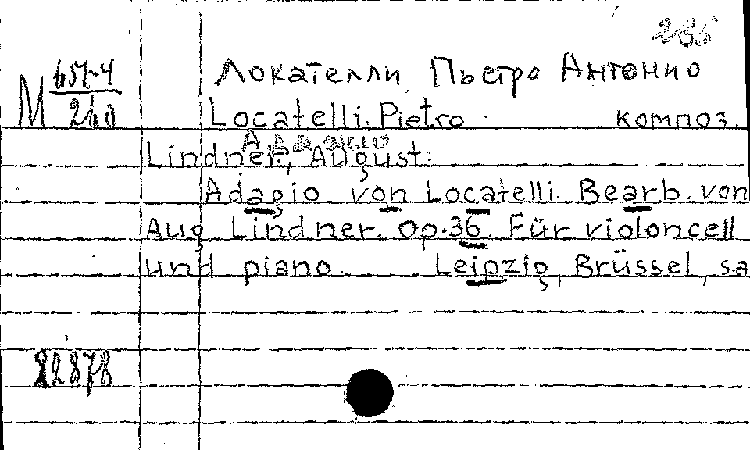 М 651-4
240
Локателли Пьетро Антонио
Locatelli. Pietro композ.
Lindner, August.
Adagio von Locatelli. Bearb. von
Aug Lindner. Op. 36. Für violoncell
und piano. Leipzig, Brüssel, sa
22878